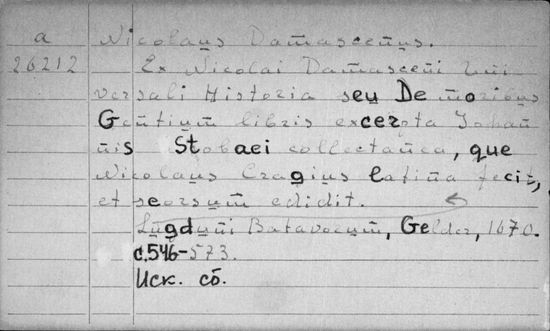 a Nicolaus Damascenus.
26212 Ex Nicolai Damasceni Uni
versali Historia seu De moribus
Gentium libris excerpta Johan
nis Stobaei collectanea, que
Nicolaus Cragius latina fecit,
et seorsum edidit.
Lugduni Batavorum, Gelder, 1670.
c.546-573.
Иск. сб.